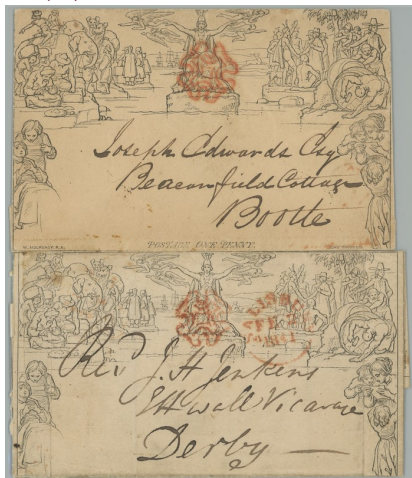 Joseph Edwards Esq
Beaconsfield Cottage
Bootle
W. MULREADY R.A.
POSTAGE ONE PENNY.
FE
1841
Rev J. H. Jenkins
Vicarage
Derby